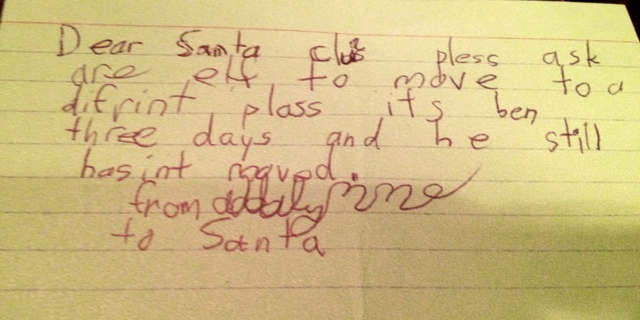 Dear Santa clus pless ask
are elf to move to a
difrint plass it's ben
three days and he still
hasint moved.
from
to Santa